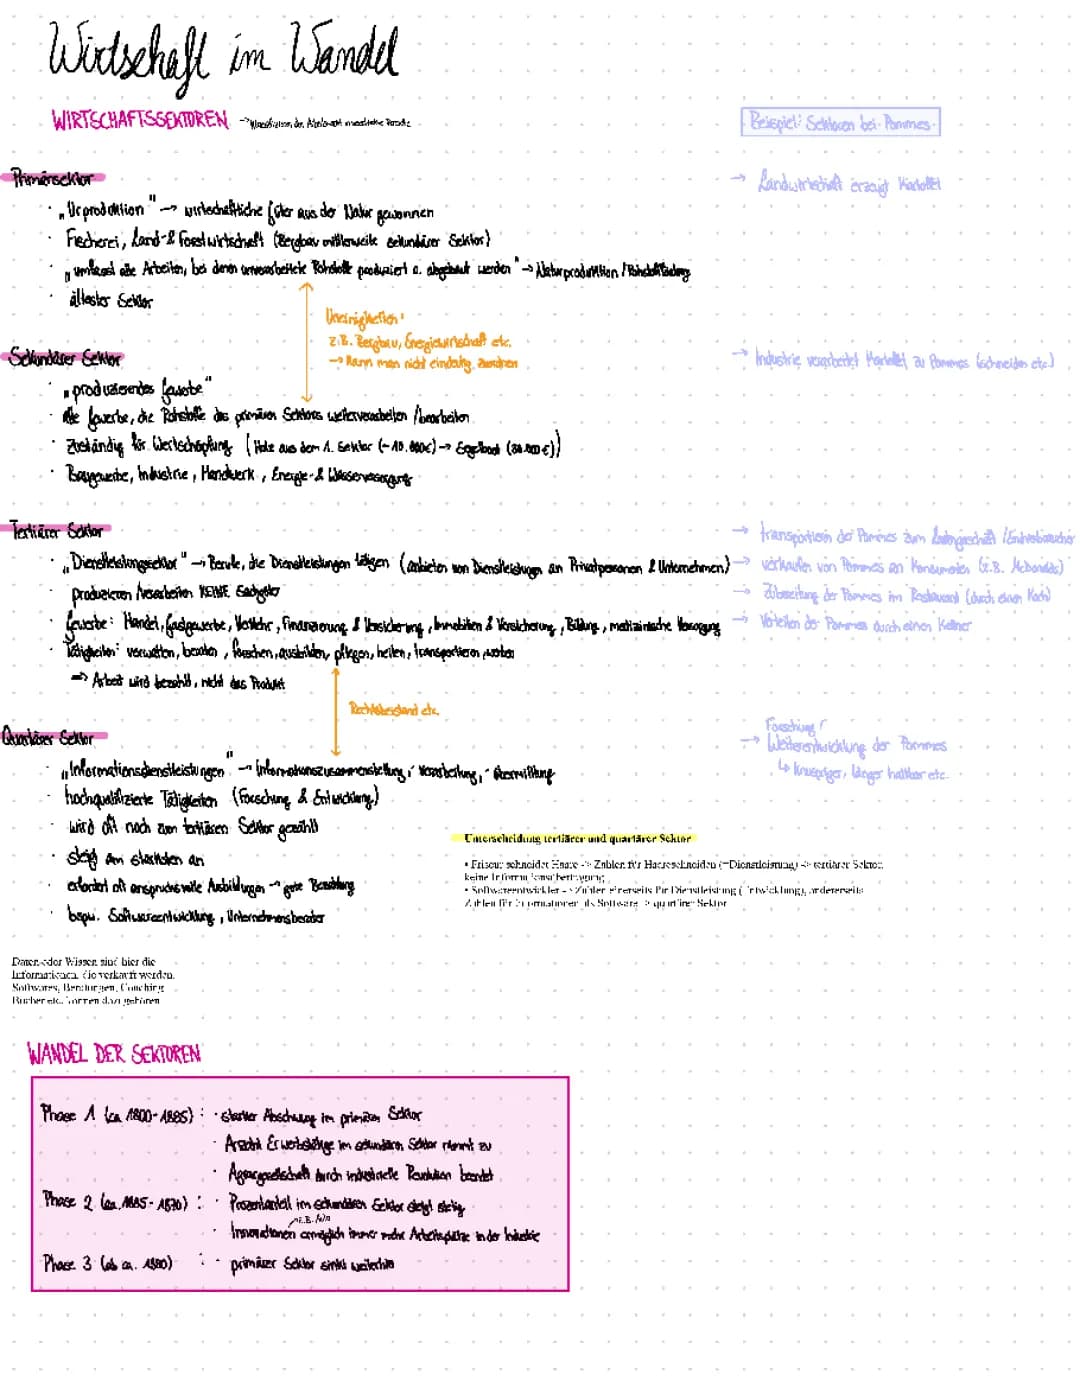 Wirtschaft im Wandel
WIRTSCHAFTSSEKTOREN
Beispiel: Sektoren bei Pommes
Primärsektor
→ Landwirtschaft erzeugt Kartoffel
· „Urproduktion" → wirtschaftliche Güter aus der Natur gewonnen
· Fischerei, Land- & Forstwirtschaft (Bergbau mittlerweile sekundärer Sektor)
· „umfasst alle Arbeiten, bei denen unverarbeitete Rohstoffe produziert o. abgebaut werden" → Naturproduktion /
· ältester Sektor
Uneinigkeiten:
z.B. Bergbau, Energiewirtschaft etc.
→ kann man nicht eindeutig zuordnen
Sekundärer Sektor
→ Industrie verarbeitet Kartoffel zu Pommes (schneiden etc.)
· „produzierendes Gewerbe"
· alle Gewerbe, die Rohstoffe des primären Sektors weiterverarbeiten /bearbeiten
· Zuständig für Wertschöpfung (Holz aus dem 1. Sektor (~10.000€) → Segelboot (80.000€))
· Baugewerbe, Industrie, Handwerk, Energie- & Wasserversorgung
Tertiärer Sektor
→ transportieren der Pommes zum Ladengeschäft /Endverbraucher
· „Dienstleistungssektor" → Berufe, die Dienstleistungen tätigen (anbieten von Dienstleistungen an Privatpersonen & Unternehmen)
→ verkaufen von Pommes an Konsumenten (z.B. McDonalds)
· produzieren /verarbeiten KEINE Sachgüter
→ Zubereitung der Pommes im Restaurant (durch einen Koch)
· Gewerbe: Handel, Gastgewerbe, Verkehr, Finanzierung & Versicherung, Immobilien & Versicherung, Bildung, medizinische Versorgung
→ Verteilen der Pommes durch einen Kellner
· Tätigkeiten: verwalten, beraten, forschen, ausbilden, pflegen, heilen, transportieren
⇒ Arbeit wird bezahlt, nicht das Produkt
Rechtsbeistand etc.
Quartärer Sektor
Forschung /
→ Weiterentwicklung der Pommes
↳ knuspriger, länger haltbar etc.
· „Informationsdienstleistungen" → Informationszusammenstellung, -verarbeitung, -übermittlung
· hochqualifizierte Tätigkeiten (Forschung & Entwicklung)
· wird oft noch zum tertiären Sektor gezählt
· steigt am stärksten an
· erfordert oft anspruchsvolle Ausbildungen → gute Bezahlung
· bspw. Softwareentwicklung, Unternehmensberater
Unterscheidung tertiärer und quartärer Sektor
• Friseur schneidet Haare -> Zahlen für Haareschneiden (=Dienstleistung) -> tertiärer Sektor,
keine Informationsübertragung
• Softwareentwickler -> Zahlen einerseits für Dienstleistung (Entwicklung), andererseits
Zahlen für Informationen als Software -> quartärer Sektor
Daten oder Wissen sind hier die
Informationen, die verkauft werden.
Softwares, Beratungen, Coaching
Bücher etc. können dazu gehören
WANDEL DER SEKTOREN
Phase 1 (ca. 1800-1885) : · starker Abschwung im primären Sektor
· Anzahl Erwerbstätige im sekundären Sektor nimmt zu
· Agrargesellschaft durch industrielle Revolution beendet
Phase 2 (ca. 1885- 1970) : · Prozentanteil im sekundären Sektor steigt stetig
· Innovationen ermöglich immer mehr Arbeitsplätze in der Industrie
Phase 3 (ab ca. 1980) : · primärer Sektor sinkt weiterhin